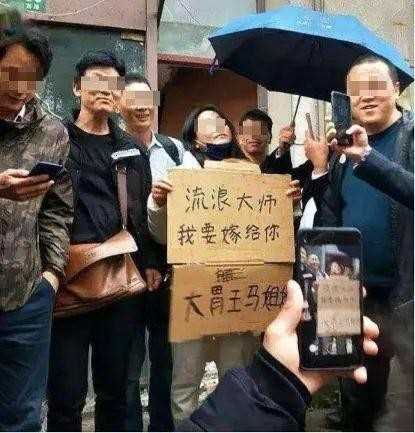 流浪大师
我要嫁给你
大胃王马姐姐